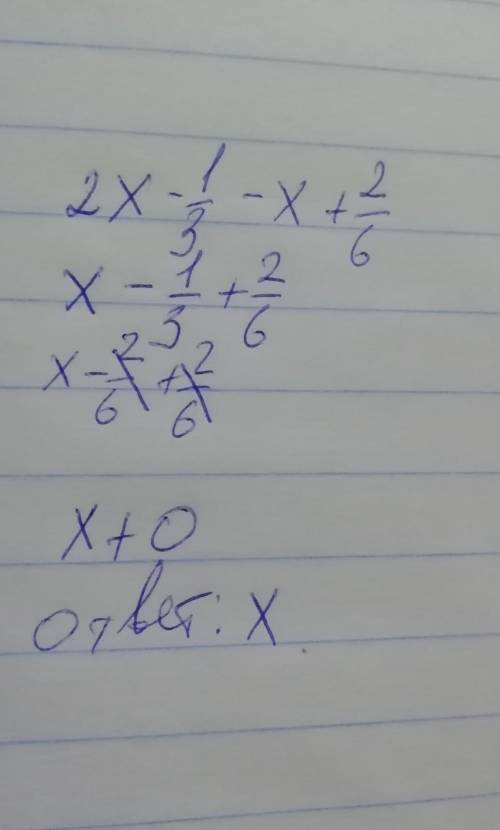 2x - 1/3 - x + 2/6
x - 1/3 + 2/6
x - 2/6 + 2/6
x + 0
Ответ: x